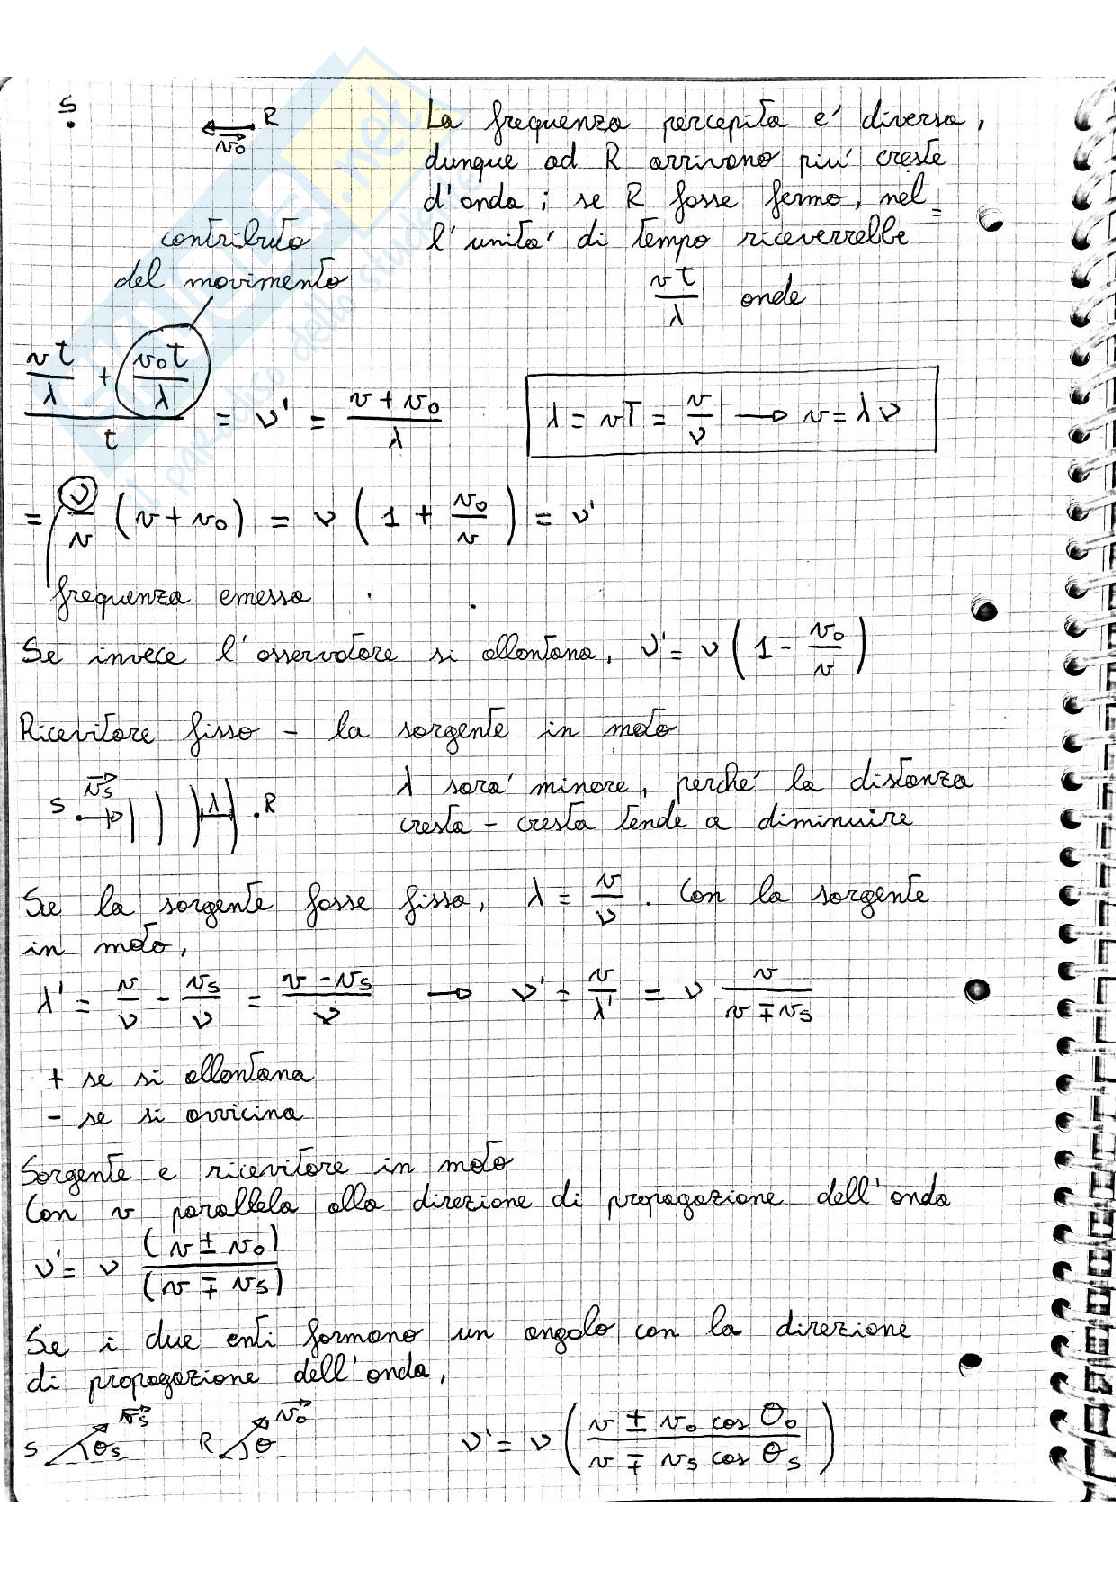 S
R
v₀
La frequenza percepita e' diversa,
dunque ad R arrivano piu' creste
d'onda; se R fosse fermo, nel=
l'unita' di tempo riceverebbe
vt/λ onde
contributo
del movimento
(vt/λ + v₀t/λ)/t = ν' = (v + v₀)/λ
λ = vT = v/ν → v = λν
= ν/v (v + v₀) = ν (1 + v₀/v) = ν'
frequenza emessa
Se invece l'osservatore si allontana, ν' = ν (1 - v₀/v)
Ricevitore fisso - la sorgente in moto
S vs λ R
λ sara' minore, perche' la distanza
cresta - cresta tende a diminuire
Se la sorgente fosse fissa, λ = v/ν. Con la sorgente
in moto,
λ' = v/ν - vs/ν = (v - vs)/ν → ν' = v/λ' = ν v/(v ∓ vs)
+ se si allontana
- se si avvicina
Sorgente e ricevitore in moto
Con v parallela alla direzione di propagazione dell'onda
ν' = ν (v ± v₀)/(v ∓ vs)
Se i due enti formano un angolo con la direzione
di propagazione dell'onda,
S vs θs R v₀ θ
ν' = ν ((v ± v₀ cos θ₀)/(v ∓ vs cos θs))